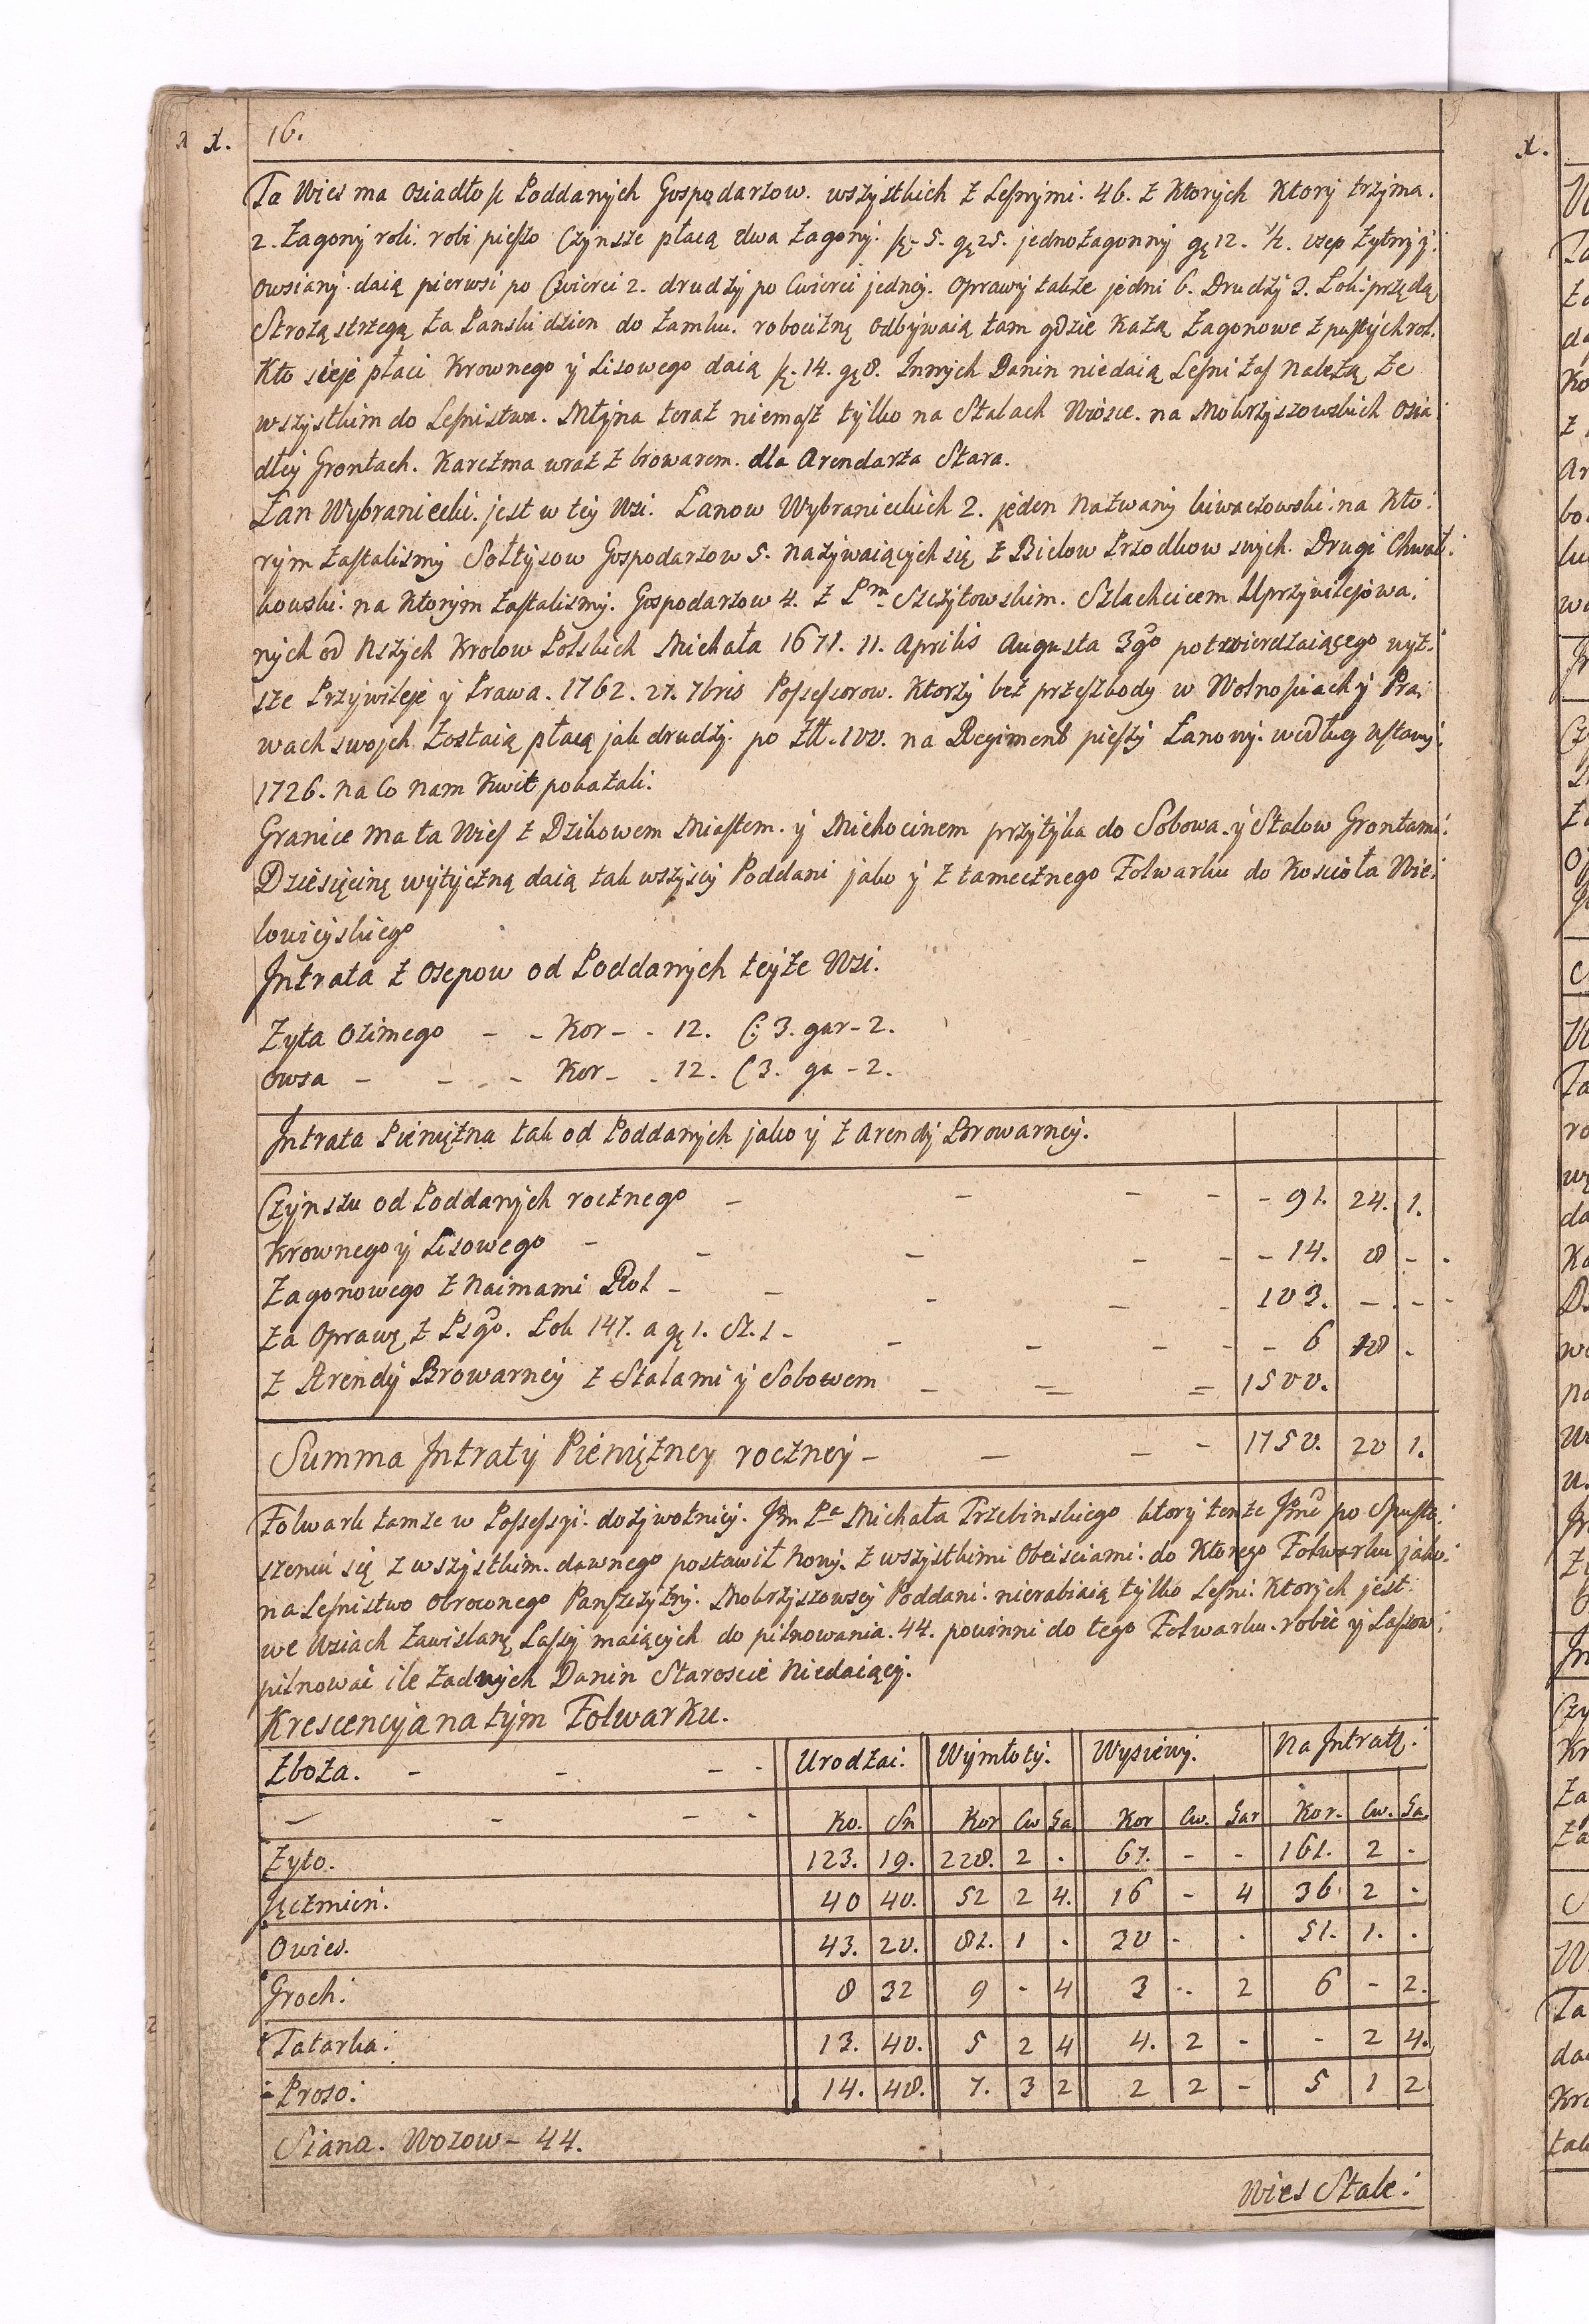 x. 16.
Ta Wies ma osiadłoſc Poddanych Gospodarzow. wszystkich z Leſnymi. 46. z Ktorych Ktory trzyma.
2. Zagony roli. robi pieſzo Czynsze płacą dwa Zagony. fl. 5. gę 25. jednozagonny gę 12. ½. osep żytny y.
Owsiany daią pierwsi po Cwierci 2. drudzy po Cwierci jedney. Oprawy także jedni 6. Drudzy 3. Łok. przędą
Strożą strzegą Za Panski dzien do Zamku. robociznę odbywaią tam gdzie Każą Zagonowe z puſtych rol.
Kto sieje płaci Krownego y Lisowego daią fl. 14. gę 8. Innych Danin niedaią Leſni Zaſ Należą Ze
wszystkim do Leſnistwa. Młyna teraz niemaſz tylko na Stalach Wiosce. na Mokrzyszowskich Osia:
dłey Grontach. Karczma wraz z browarem. dla Arendarza Stara.
Łan Wybraniecki. jest w tey Wsi. Łanow Wybranieckich 2. jeden Nazwany kiwaczowski. na Kto:
rym Zaſtalismy Sołtysow Gospodarzow 5. Nazywaiących się z Bielow Przodkow swych. Drugi Chwał:
kowski. na Ktorym Zaſtalismy. Gospodarzow 4. z Pm Szczytowskim. Szlachcicem Uprzywilejowa:
nych od Nszych Krolow Polskich Michała 1671. 11. Aprilis Augusta 3go potwierdzaiącego wyż:
sze Przywileje y Prawa. 1762. 27. 7bris Poſseſsorow. Ktorzy bez przeſzkody w Wolnoſciach y Pra:
wach swojch Zostaią płacą jak drudzy. po Złł. 100. na Regiment pieſzy Łanowy. według Uſtawy.
1726. na Co nam Kwit pokazali.
Granice ma ta Wieſ z Dzikowem Miaſtem. y Miechocinem przytyka do Sobowa. y Stalow Grontami.
Dziesięcinę wytyczną daią tak wszyscy Poddani jako y z tamecznego Folwarku do Koscioła Wie:
lowieyskiego
Jntrata z osepow od Poddanych teyże Wsi.
Zyta Ozimego - - Kor - . 12. C: 3. gar - 2.
Owsa - - - - Kor - . 12. C 3. ga - 2.
Jntrata Pieniężna tak od Poddanych jako y z Arendy Browarney.
Czynszu od Poddanych rocznego - - - - - 91. 24. 1.
Krownego y Lisowego - - - - - - 14. 8 - .
Zagonowego z Naimami Rol - - - - - 103. - - -
Za Oprawę z Psgo. Łok 147. a gę 1. Sz. 1 - - - - - - 6 18 .
Z Arendy Browarney z Stalami y Sobowem - = = 1500.
Summa Jntraty Pieniężney roczney - - - - 1750. 20 1.
Folwark tamże w Poſseſsyi dożywotniey. Jm Pa Michała Trzebinskiego ktory tenże Jmć po Spuſto:
szeniu się z wszystkim. dawnego postawił Nowy. z wszystkimi Obeisciami. do Ktorego Folwarku jako:
na Leſnistwo obroconego Panſzczyzny. Mokrzyszowscy Poddani. nierabiaią tylko Leſni. Ktorych jest
we Wsiach Zawislanę Laſsy maiących do pilnowania. 44. powinni do tego Folwarku. robić y Laſsow:
pilnować ile Zadnych Danin Staroscie Niedaiący.
Krescencyja na tym Folwarku.
Zboża. - - - - Urodzai. Wymłoty. Wysiewy. Na Jntratę.
- - - - Ko. Sn Kor Cw Ga. Kor Cw. Gar Kor. Cw. Ga.
Zyto. 123. 19. 228. 2 . 67. - - 161. 2 .
Jęczmien. 40 40. 52 2 4. 16 - 4 36 2 .
Owies. 43. 20. 81. 1 . 30 . . 51. 1. .
Groch. 8 32 9 - 4 3 .. 2 6 - 2.
Tatarka. 13. 40. 5 2 4 4. 2 - - 2 4.
Proso. 14. 48. 7. 3 2 2 2 - 5 1 2
Siana. Wozow - 44.
Wies Stale.